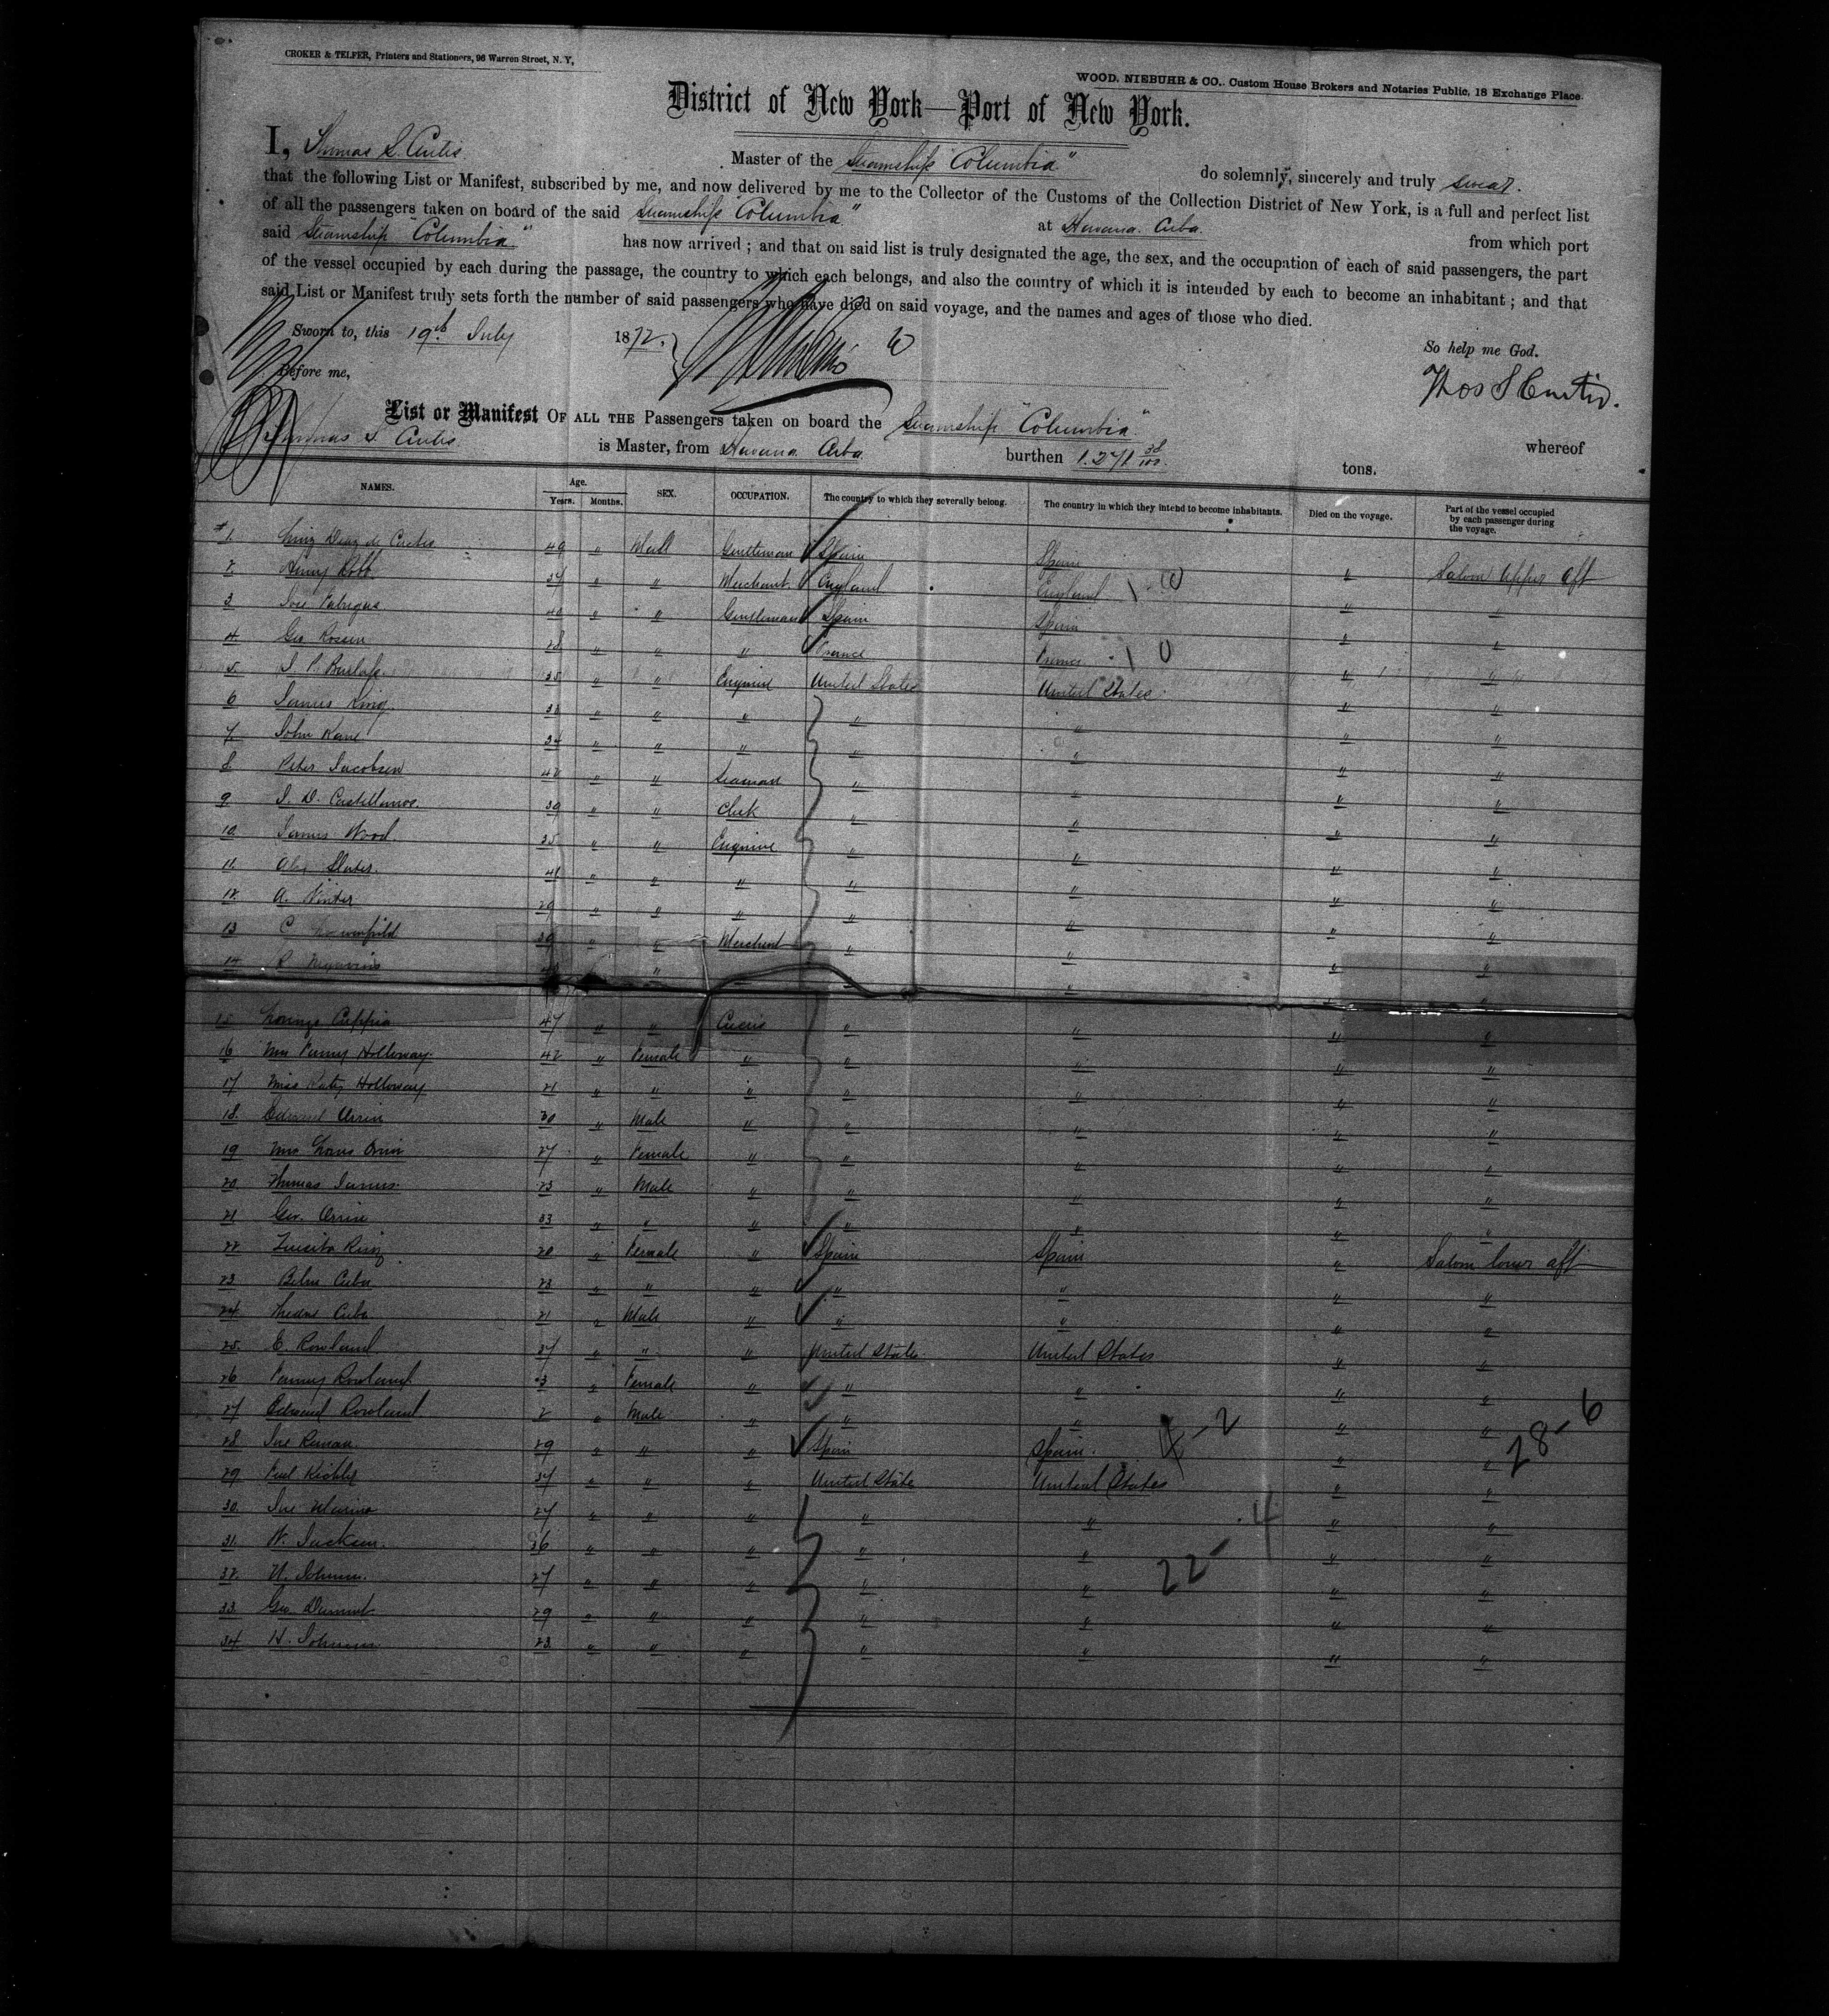 CROKER & TELFER, Printers and Stationers, 96 Warren Street, N. Y,
WOOD, NIEBUHR & CO,. Custom House Brokers and Notaries Public, 18 Exchange Place.
District of New York—Port of New York.
I, Thomas S. Curtis Master of the Steamship "Columbia" do solemnly, sincerely and truly swear.
that the following List or Manifest, subscribed by me, and now delivered by me to the Collector of the Customs of the Collection District of New York, is a full and perfect list
of all the passengers taken on board of the said Steamship "Columbia" at Havana. Cuba. from which port
said Steamship "Columbia" has now arrived ; and that on said list is truly designated the age, the sex, and the occupation of each of said passengers, the part
of the vessel occupied by each during the passage, the country to which each belongs, and also the country of which it is intended by each to become an inhabitant ; and that
said List or Manifest truly sets forth the number of said passengers who have died on said voyage, and the names and ages of those who died.
Sworn to, this 19th July 1872. So help me God.
Before me, Thos S Curtis.
List or Manifest OF ALL THE Passengers taken on board the Steamship "Columbia" whereof
Thomas S. Curtis. is Master, from Havana Cuba burthen 1.271 38/100 tons.
NAMES. Age. Years. Months. SEX. OCCUPATION. The country to which they severally belong. The country in which they intend to become inhabitants. Died on the voyage. Part of the vessel occupied by each passenger during the voyage.
1. 49 " Male Gentleman Spain Spain " Saloon Upper Aft
2 Henry Robb 34 " " Merchant. England England " "
3 Jose Fabregas 40 " " Gentleman Spain Spain " "
4 Geo Rosen 28 " " " France France " "
5. 35 " " Engineer United States United States. " "
6 James King. " " " " " " "
7. John Kane 34 " " " " " " "
8. Peter Jacobsen 42 " " Seaman " " " "
9. J. D. Castellanos. 39 " " Clerk " " " "
10. James Wood. 35 " " Engineer " " " "
11. Slater. 41 " " " " " " "
12. A. Winter 29 " " " " " " "
13 C. 39 " " Merchant " " " "
14 R. " " " " "
15 Lorenzo 47 " " Circus " " " "
16 Mrs Fanny Holloway. 42 " Female " " " " "
17 Miss Katy Holloway 21 " " " " " " "
18. Edward Orrin 30 " Male " " " " "
19 Mrs Orrin 27 " Female " " " " "
20 Thomas James. 23 " Male " " " " "
21 Geo. Orrin 33 " " " " " " "
22 Luisita Ruiz 20 " Female " Spain Spain " Saloon lower aft
23 Cuba 23 " " " " " " "
24 Cuba 21 " Male " " " " "
25. E. Rowland 37 " " " United States. United States " "
26 Fanny Rowland. " Female " " " " "
27 Edward Rowland. 2 " Male " " " " "
28 Jose 29 " " " Spain Spain. " "
29 34 " " " United State United States " "
30. Jose Marino 27 " " " " " " "
31. W. Jackson. 36 " " " " " " "
32. Johnson. 27 " " " " " " "
33. Geo 29 " " " " " " "
34. H. Johnson 23. " " " " " " "
28-6
22-4